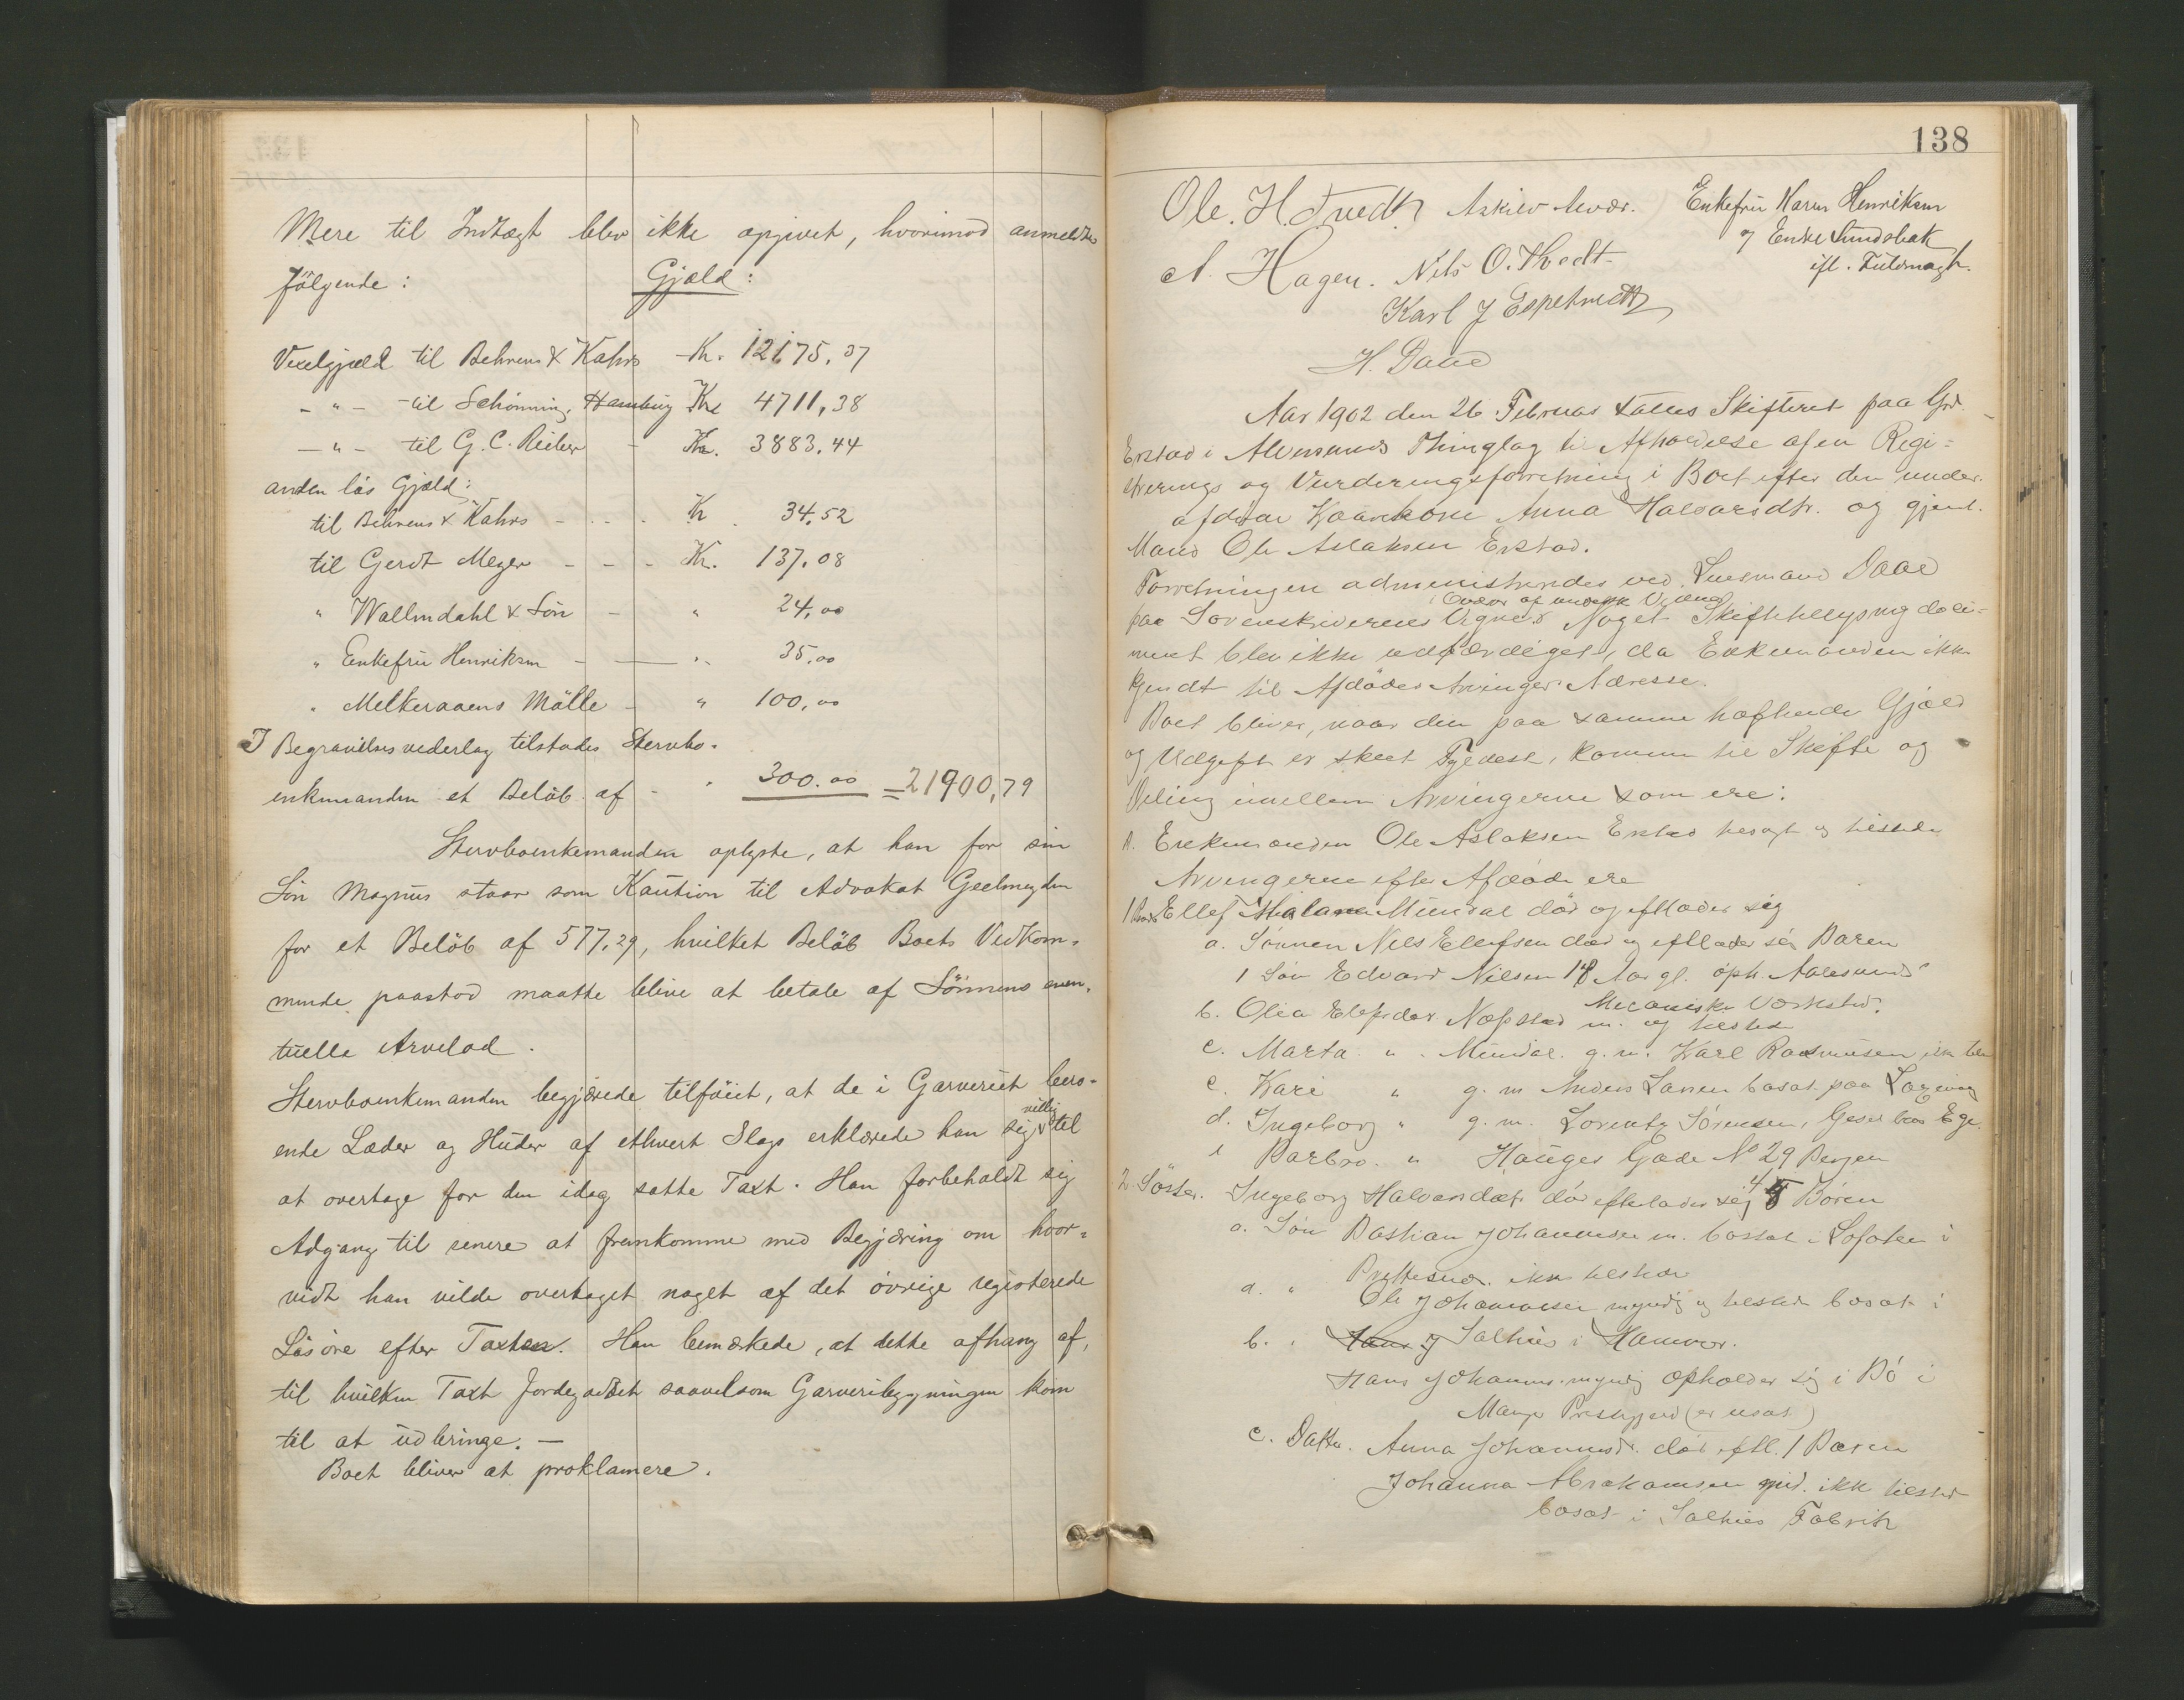 Mere til Indtægt blev ikke opgivet, hvorimod anmeldtes
følgende: Gjæld:
Vexelgjæld til Behrens & Kahrs Kr. 12175,37
- " - til Schönning, Hamburg Kr 4711,38
- " - til G. C. Rieber - Kr. 3883,44
anden lös Gjæld:
til Behrens & Kahrs - - - Kr. 34,52
til Gerdt Meyer - - - Kr. 137,08
" Wallendahl & Sön - " 24,00
" Enkefru Henriksen - - " 35,00
" Melkeraaens Mölle - " 100,00
I Begravelsesvederlag tilstodes Stervbo-
enkemanden et Beløb af - " 300.00 = 21900,79
Stervboenkemanden oplyste, at han for sin
Sön Magnus staar som Kaution til Advokat Geelmeyden
for et Belöb af 577,29, hvilket Belöb Boets Vedkom-
mende paastod maatte blive at betale af Sönnens even-
tuelle Arvelod.
Stervboenkemanden begjærede tilföiet, at de i Garveriet bero-
ende Læder og Huder af ethvert Slags erklærede han sig villig til
at overtage for den idag satte Taxt. Han forbeholdt sig
Adgang til senere at fremkomme med Begjæring om hvor-
vidt han vilde overtaget noget af det övrige registerede
Lösöre efter Taxten. Han bemærkede, at dette afhang af,
til hvilken Taxt Jordegodset saavelsom Garveribygningen kom
til at udbringe. -
Boet bliver at proklamere.
138
Ole. H. Tvedt Askild Enkefru Karen Henriksen
og Enke Sundsbak
A. Hagen. Nils O. Thvedt ifl. Fuldmagt.
Karl J Espetvedt
H. Daae
Aar 1902 den 26 Februar sattes Skifteret paa Grd.
Erstad i Alversunds Thinglag til Afholdelse af en Regi-
strerings og Vurderingsforretning i Boet efter den under
afdöde Kaarkone Anna Halvarsdtr. og gjenl.
Mand Ole Aslaksen Erstad.
Forretningen administreredes ved Lensmand Daae
i Overvær af undersk Vidner
paa Sorenskriverens Vegne. Noget Skiftetillysningsdoku-
ment blev ikke udfærdiget, da Enkemanden ikke
kjendt til Afdödes Arvinger Adresse.
Boet bliver, naar den paa samme hæftende Gjæld
og Udgift er skeet Fyldest, komme til Skifte og
Deling imellem Arvingerne som ere:
A. Enkemanden Ole Aslaksen Erstad besagt og tilstede
Arvingerne efter Afdöde ere
1 Broder Ellef Mundal död og efterlader sig
a. Sönnen Nils Ellefsen död og efterlader sig Barn
1 Sön Edvard Nilsen 18 Aar gl. oph. Aalesunds
Mecaniske Værksted.
b. Olia Ellefsdtr Næpstad m. og tilstede
c. Marta " Mundal. g. m. Karl Rasmusen ikke
c. Kari " g. m Anders Larsen bosat paa
d. Ingeborg " g. m. Lorentz Sörensen,
e Barbro. " Hauges Gade No 29 Bergen
2 Söster. Ingeborg Halvarsdatr död efterlader sig 4 Börn
a. Sön Bastian Johannesen m. bosat i Lofoten i
ikke tilstede
a. " Ole Johannesen myndig og tilstede bosat i
b. " Salhus i Hamre.
Hans Johannes. myndig opholder sig i Bö i
Mange Prestegjeld
c. Datter. Anna Johannesdr. död eftl. 1 Barn
Johanna Abrahamsen myd. ikke tilsted
bosat i Salhus Fabrik